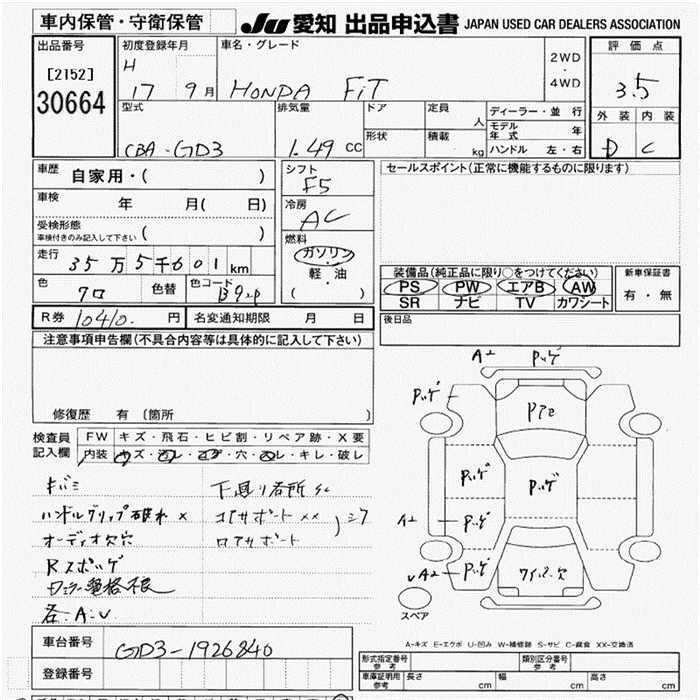 車内保管・守衛保管 JU 愛知 出品申込書 JAPAN USED CAR DEALERS ASSOCIATION
出品番号 初度登録年月 車名・グレード 2WD・4WD 評価点
[2152] H
30664 17 9月 HONDA FiT 3.5
型式 排気量 ドア 定員 人 ディーラー・並行 外装 内装
モデル年式 年
CBA-GD3 1.49 CC 形状 積載 kg ハンドル 左・右 D C
車歴 自家用・( ) シフト F5 セールスポイント(正常に機能するものに限ります)
車検 年 月( 日) 冷房 AC
受検形態
車検付きのみ記入して下さい ( ) 燃料
走行 35万5千601km ガソリン
軽・油
( )
装備品(純正品に限り○をつけてください) 新車保証書
PS PW エアB AW 有・無
SR ナビ TV カワシート
色 クロ 色替 色コード B92P
R券 10410. 円 名変通知期限 月 日 後日品
注意事項申告欄(不具合内容等は具体的に記入して下さい)
修復歴 有 〔箇所 〕
検査員記入欄 FW キズ・飛石・ヒビ割・リペア跡・X要
内装 キズ・汚レ・コゲ・穴・スレ・キレ・破レ
キバミ
ハンドルグリップ破れ X
オーディオ欠穴
Rスポッゲ
各A.U
下廻り各所
コアサポート XX
ロアサポート
A2 Pッゲ
Pッゲ
Pッゲ Pッゲ
A2 Pッゲ
A2 Pッゲ ワイパー欠
スペア
A-キズ E-エクボ U-凹み W-補修跡 S-サビ C-腐食 XX-交換済
車台番号 GD3-1926840
登録番号
形式指定番号 参考 類別区分番号 参考
車庫証明用 参考 長さ cm 幅 cm 高さ cm